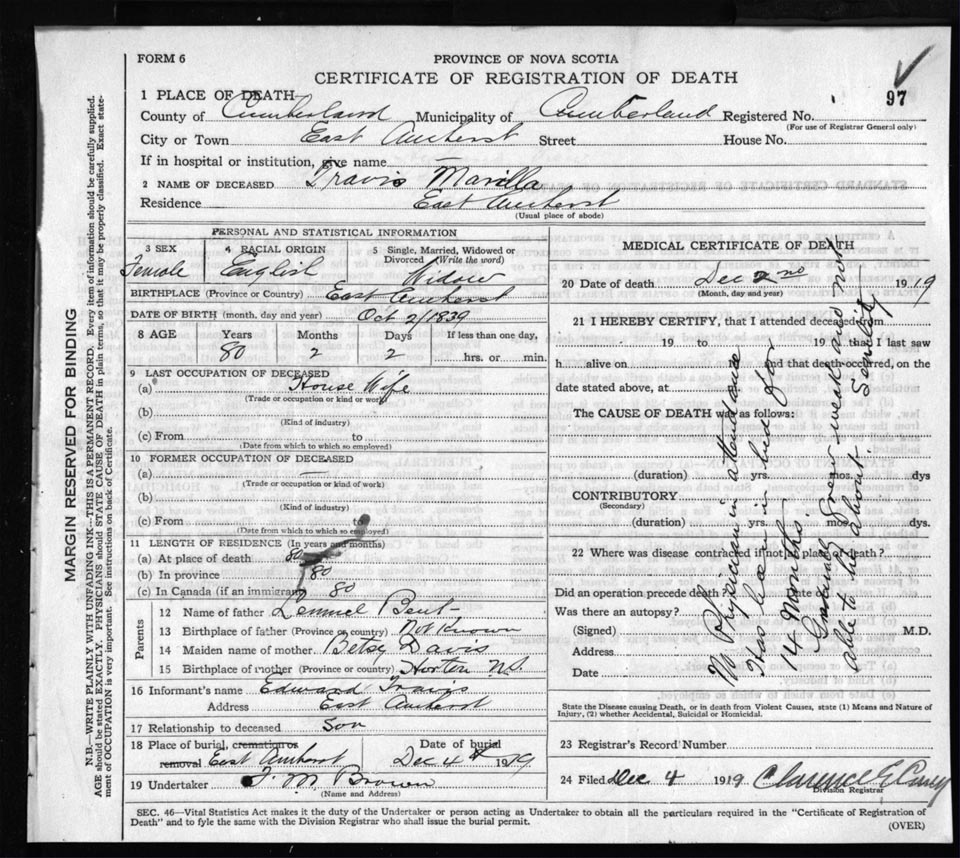 FORM 6
PROVINCE OF NOVA SCOTIA
CERTIFICATE OF REGISTRATION OF DEATH
97
1 PLACE OF DEATH—
County of Cumberland Municipality of Cumberland Registered No.
(For use of Registrar General only)
City or Town East Amherst Street House No.
If in hospital or institution, give name —
2 NAME OF DECEASED Travis Marilla
Residence East Amherst
(Usual place of abode)
PERSONAL AND STATISTICAL INFORMATION
3 SEX
Female
4 RACIAL ORIGIN
English
5 Single, Married, Widowed or
Divorced (Write the word)
Widow
BIRTHPLACE (Province or Country) East Amherst
DATE OF BIRTH (month, day and year) Oct 2/1839
8 AGE Years Months Days If less than one day,
80 2 2 hrs. or min.
9 LAST OCCUPATION OF DECEASED
(a) House Wife
(Trade or occupation or kind or work)
(b)
(Kind of industry)
(c) From to
(Date from which to which employed)
10 FORMER OCCUPATION OF DECEASED
(a) —
(Trade or occupation or kind of work)
(b)
(Kind of industry)
(c) From to
(Date from which to which so employed)
11 LENGTH OF RESIDENCE (In years and months)
(a) At place of death 80
(b) In province 80
(c) In Canada (if an immigrant) 80
Parents
12 Name of father Lemuel Bent
13 Birthplace of father (Province or country) Not Known
14 Maiden name of mother Betsy Davis
15 Birthplace of mother (Province or country) Horton N.S.
16 Informant's name Edward Travis
Address East Amherst
17 Relationship to deceased Son
18 Place of burial, cremation or
removal East Amherst
Date of burial
Dec 4th 1919
19 Undertaker J. M. Brown
(Name and Address)
MEDICAL CERTIFICATE OF DEATH
20 Date of death Dec 2nd 1919
(Month, day and year)
21 I HEREBY CERTIFY, that I attended deceased from
19 to 19 that I last saw
h alive on and that death occurred, on the
date stated above, at
The CAUSE OF DEATH was as follows:
(duration) yrs. mos. dys
CONTRIBUTORY
(Secondary)
(duration) yrs. mos. dys.
22 Where was disease contracted if not at place of death?
Did an operation precede death? Date of
Was there an autopsy?
(Signed) M.D.
Address
Date
No Physician in attendance
Has been in bed for
14 Months
Gradually grow weak and not
able to be about Senility
State the Disease causing Death, or in death from Violent Causes, state (1) Means and Nature of
Injury, (2) whether Accidental, Suicidal or Homicidal.
23 Registrar's Record Number
24 Filed Dec 4 1919 Clarence E
Division Registrar
SEC. 46—Vital Statistics Act makes it the duty of the Undertaker or person acting as Undertaker to obtain all the particulars required in the "Certificate of Registration of
Death" and to fyle the same with the Division Registrar who shall issue the burial permit.
(OVER)
MARGIN RESERVED FOR BINDING
N.B.—WRITE PLAINLY WITH UNFADING INK—THIS IS A PERMANENT RECORD. Every item of information should be carefully supplied.
AGE should be stated EXACTLY. PHYSICIANS should STATE CAUSE OF DEATH in plain terms, so that it may be properly classified. Exact state-
ment of OCCUPATION is very important. See instructions on back of Certificate.